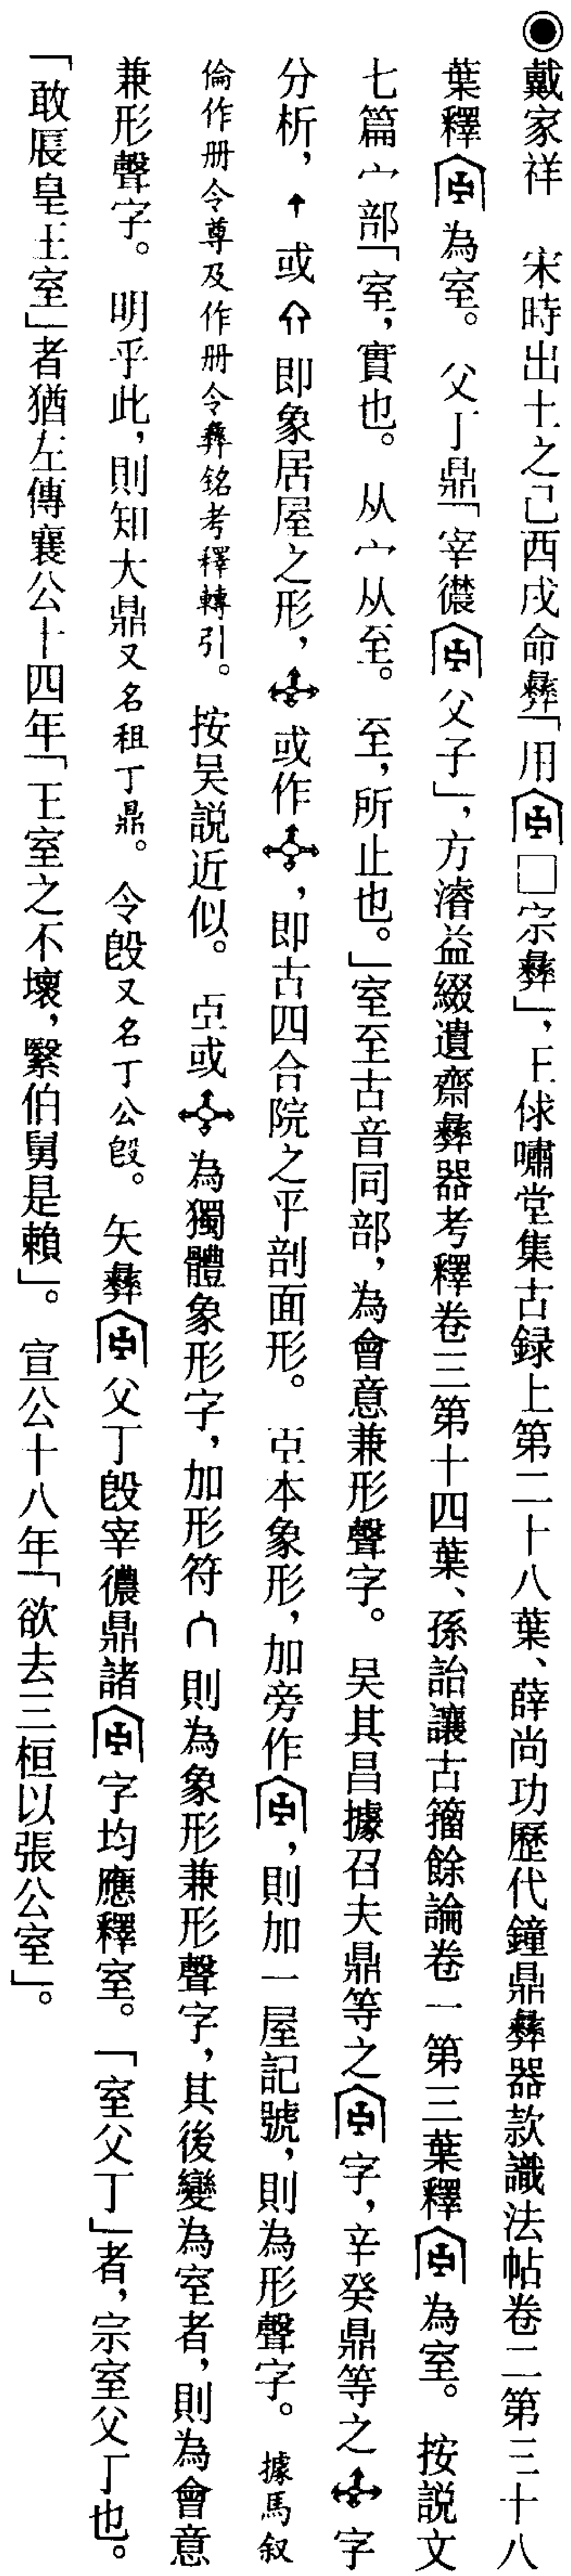 ◉戴家祥　宋時出土之己酉戌命彝「用□宗彝」，王俅嘯堂集古録上第二十八葉、薛尚功歷代鐘鼎彝器款識法帖卷二第三十八
葉釋為室。父丁鼎「宰父子」，方濬益綴遺齋彝器考釋卷三第十四葉、孫詒讓古籀餘論卷一第三葉釋為室。按説文
七篇宀部「室，實也。从宀从至。至，所止也。」室至古音同部，為會意兼形聲字。吴其昌據召夫鼎等之字，辛癸鼎等之字
分析，或即象居屋之形，或作，即古四合院之平剖面形。本象形，加旁作，則加一屋記號，則為形聲字。據馬叙
倫作册令尊及作册令彝銘考釋轉引。按吴説近似。或為獨體象形字，加形符則為象形兼形聲字，其後變為室者，則為會意
兼形聲字。明乎此，則知大鼎又名祖丁鼎。令𣪘又名丁公𣪘。矢彝父丁𣪘宰鼎諸字均應釋室。「室父丁」者，宗室父丁也。
「敢展皇王室」者猶左傳襄公十四年「王室之不壞，繄伯舅是賴」。宣公十八年「欲去三桓以張公室」。